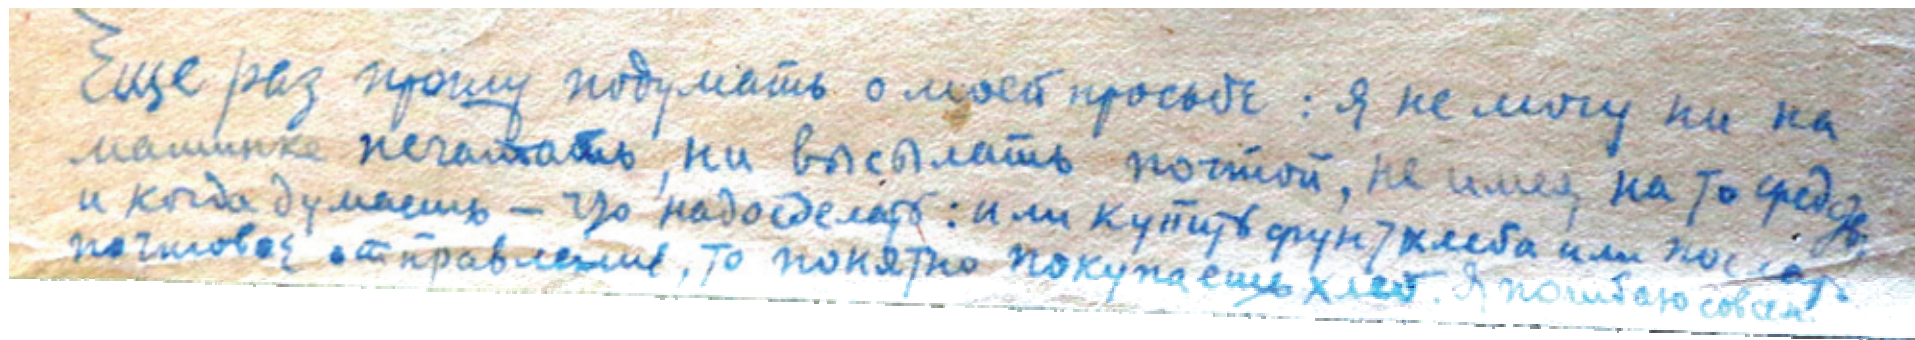 Еще раз прошу подумать о моей просьбе: я не могу ни на
машинке печатать, ни высылать почтой, не имея на то средств,
и когда думаешь – что надо сделать: или купить фунт хлеба или послать
почтовое отправление, то понятно покупаешь хлеб. Я погибаю совсем.